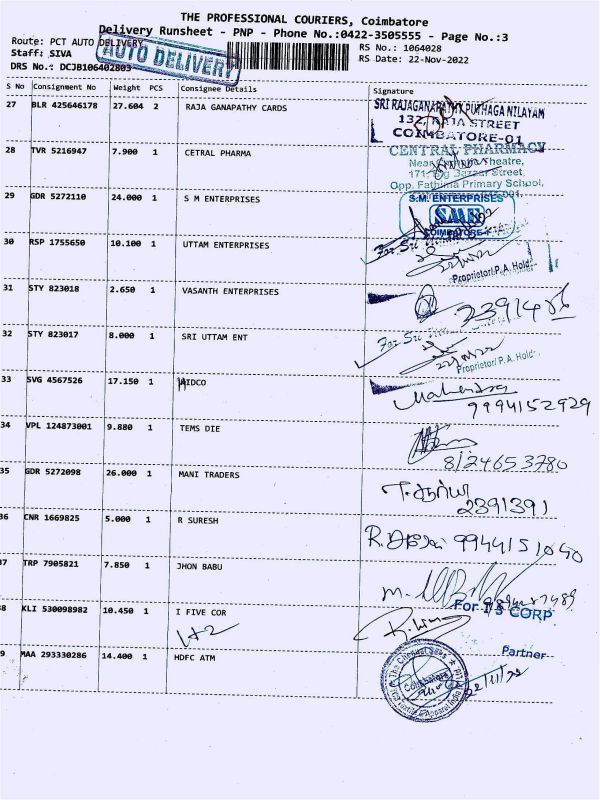 THE PROFESSIONAL COURIERS, Coimbatore
Delivery Runsheet - PNP - Phone No.:0422-3505555 - Page No.:3
Route: PCT AUTO DELIVERY
RS No.: 1064028
Staff: SIVA
RS Date: 22-Nov-2022
DRS No.: DCJB106402803
AUTO DELIVERY
S No Consignment No Weight PCS Consignee Details Signature
27 BLR 425646178 27.604 2 RAJA GANAPATHY CARDS
SRI RAJAGANAPATHY PUTHAGA NILAYAM
132, RAJA STREET
COIMBATORE-01
28 TVR 5216947 7.900 1 CETRAL PHARMA
CENTRAL PHARMACY
Theatre,
Street,
Opp. Fathima Primary School,
29 GDR 5272110 24.000 1 S M ENTERPRISES
S.M. ENTERPRISES
SME
COIMBATORE-1
30 RSP 1755650 10.100 1 UTTAM ENTERPRISES
For Sri
Proprietor/P.A. Hold
31 STY 823018 2.650 1 VASANTH ENTERPRISES
32 STY 823017 8.000 1 SRI UTTAM ENT
For Sri
Proprietor/P.A. Hold
33 SVG 4567526 17.150 1 HIDCO
Mahendra
9994152929
34 VPL 124873001 9.880 1 TEMS DIE
8124653780
35 GDR 5272098 26.000 1 MANI TRADERS
2391391
36 CNR 1669825 5.000 1 R SURESH
9944151040
37 TRP 7905821 7.850 1 JHON BABU
38 KLI 530098982 10.450 1 I FIVE COR
For I 5 CORP
Partner
39 MAA 293330286 14.400 1 HDFC ATM
The Chennai Silks
Coimbatore
22/11/22